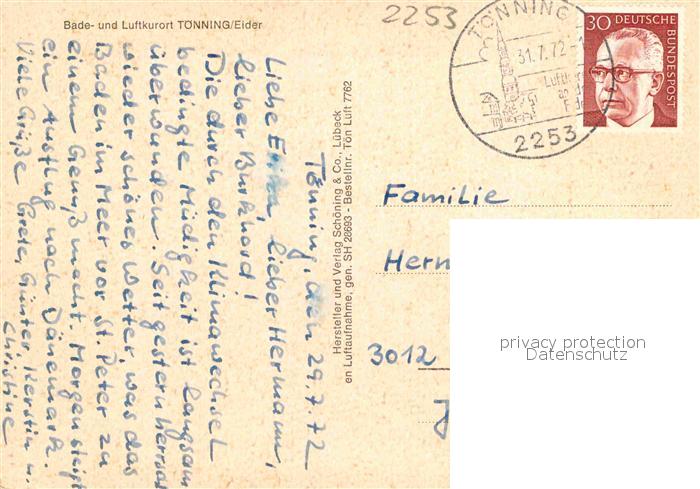 Bade- und Luftkurort TÖNNING/Eider
2253
TÖNNING
31.7.72-1
Luftkurort
an der
Eider
2253
30 DEUTSCHE
BUNDESPOST
Tönning, den 29.7.72
Liebe Erika, lieber Hermann,
lieber Burkhard!
Die durch den Klimawechsel
bedingte Müdigkeit ist langsam
überwunden. Seit gestern herrscht
wieder schönes Wetter, was das
Baden im Meer vor St. Peter zu
einem Genuß macht. Morgen steigt
ein Ausflug nach Dänemark.
Viele Grüße Grete, Günter, Kerstin u.
Christine
Hersteller und Verlag Schöning & Co., Lübeck
en Luftaufnahme, gen. SH 28693 - Bestellnr. Tön Luft 7762
Familie
Herm
3012
privacy protection
Datenschutz